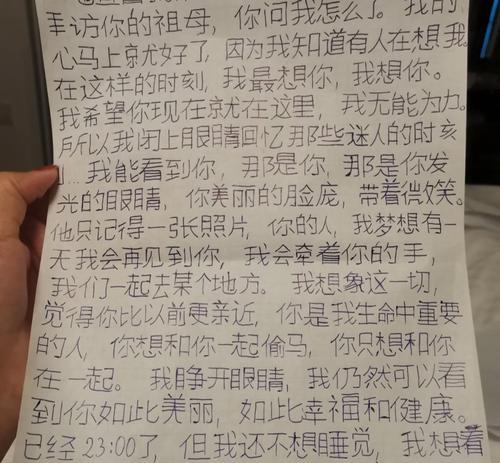 手访你的祖母，你问我怎么了。我的
心马上就好了，因为我知道有人在想我。
在这样的时刻，我最想你，我想你。
我希望你现在就在这里，我无能为力。
所以我闭上眼睛回忆那些迷人的时刻
... 我能看到你，那是你，那是你发
光的眼睛，你美丽的脸庞，带着微笑。
他只记得一张照片，你的人，我梦想有一
天我会再见到你，我会牵着你的手，
我们一起去某个地方。我想象这一切，
觉得你比以前更亲近，你是我生命中重要
的人，你想和你一起偷马，你只想和你
在一起。我睁开眼睛，我仍然可以看
到你如此美丽，如此幸福和健康。
已经23:00了，但我还不想睡觉，我想着